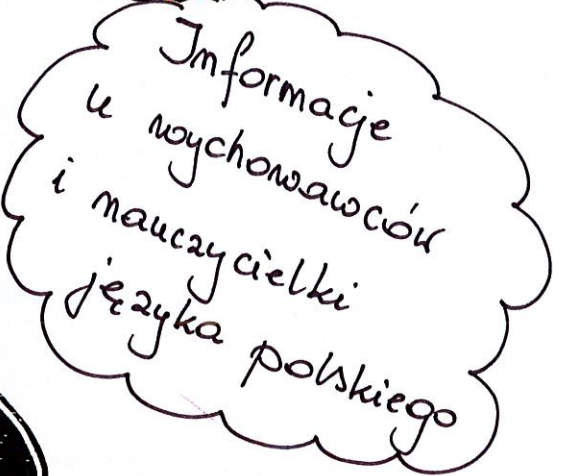 Informacje
u wychowawców
i nauczycielki
języka polskiego